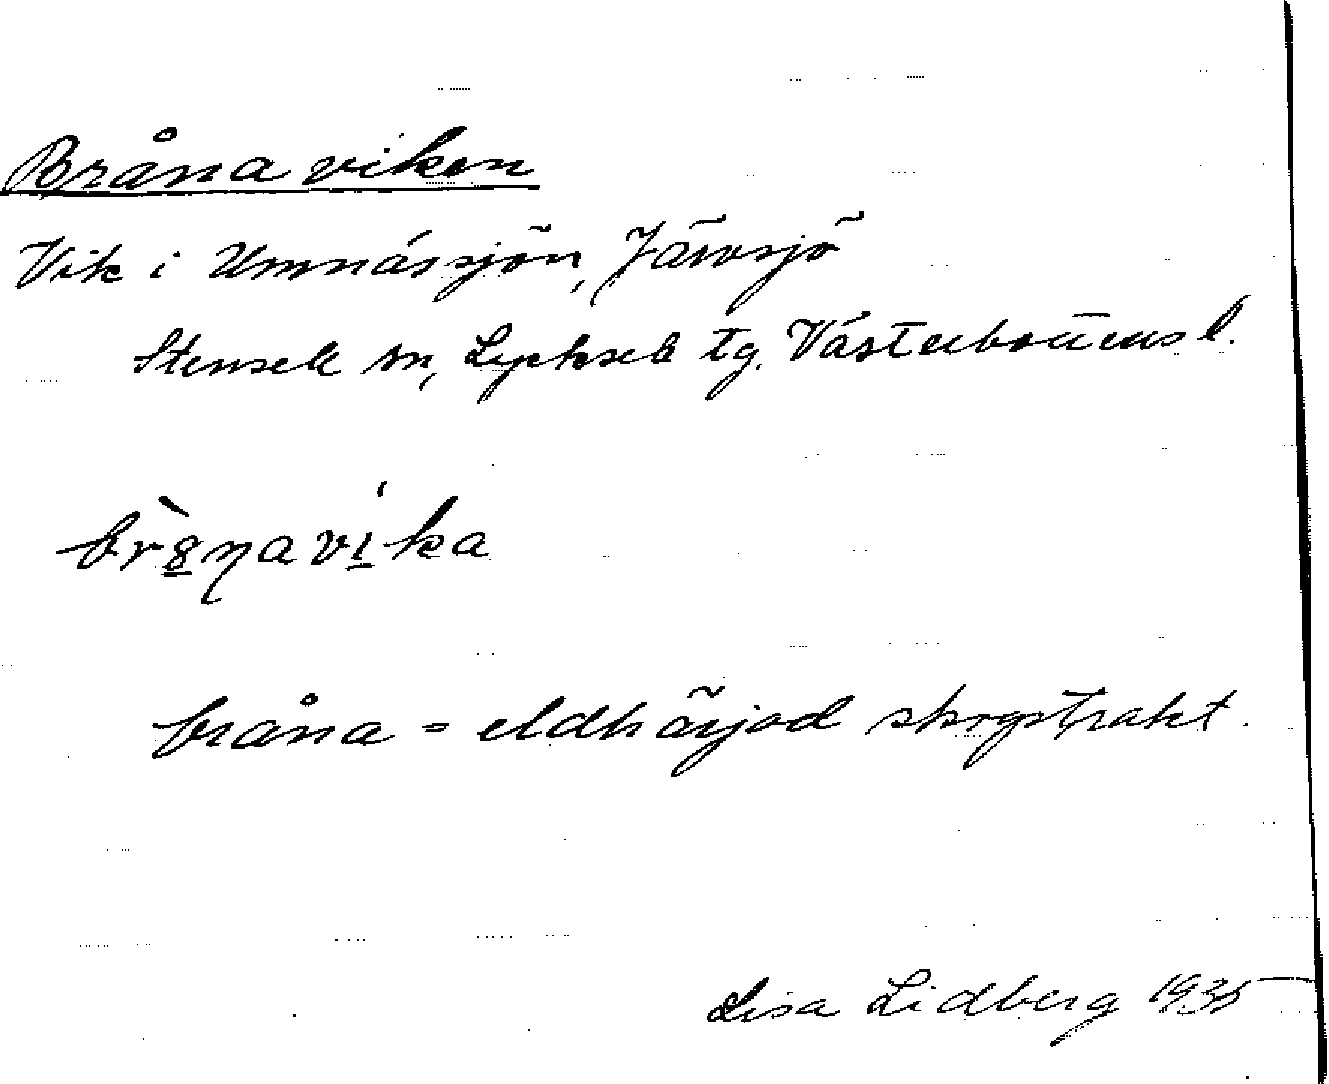 Bråna viken
Vik i Umnässjön, Järvsjö
Stensele sn, Lycksele tg. Västerbottens l.
br8̲̀ŋavi̲ka
bråna = eldhärjad skogstrakt.
Lisa Lidberg 1935